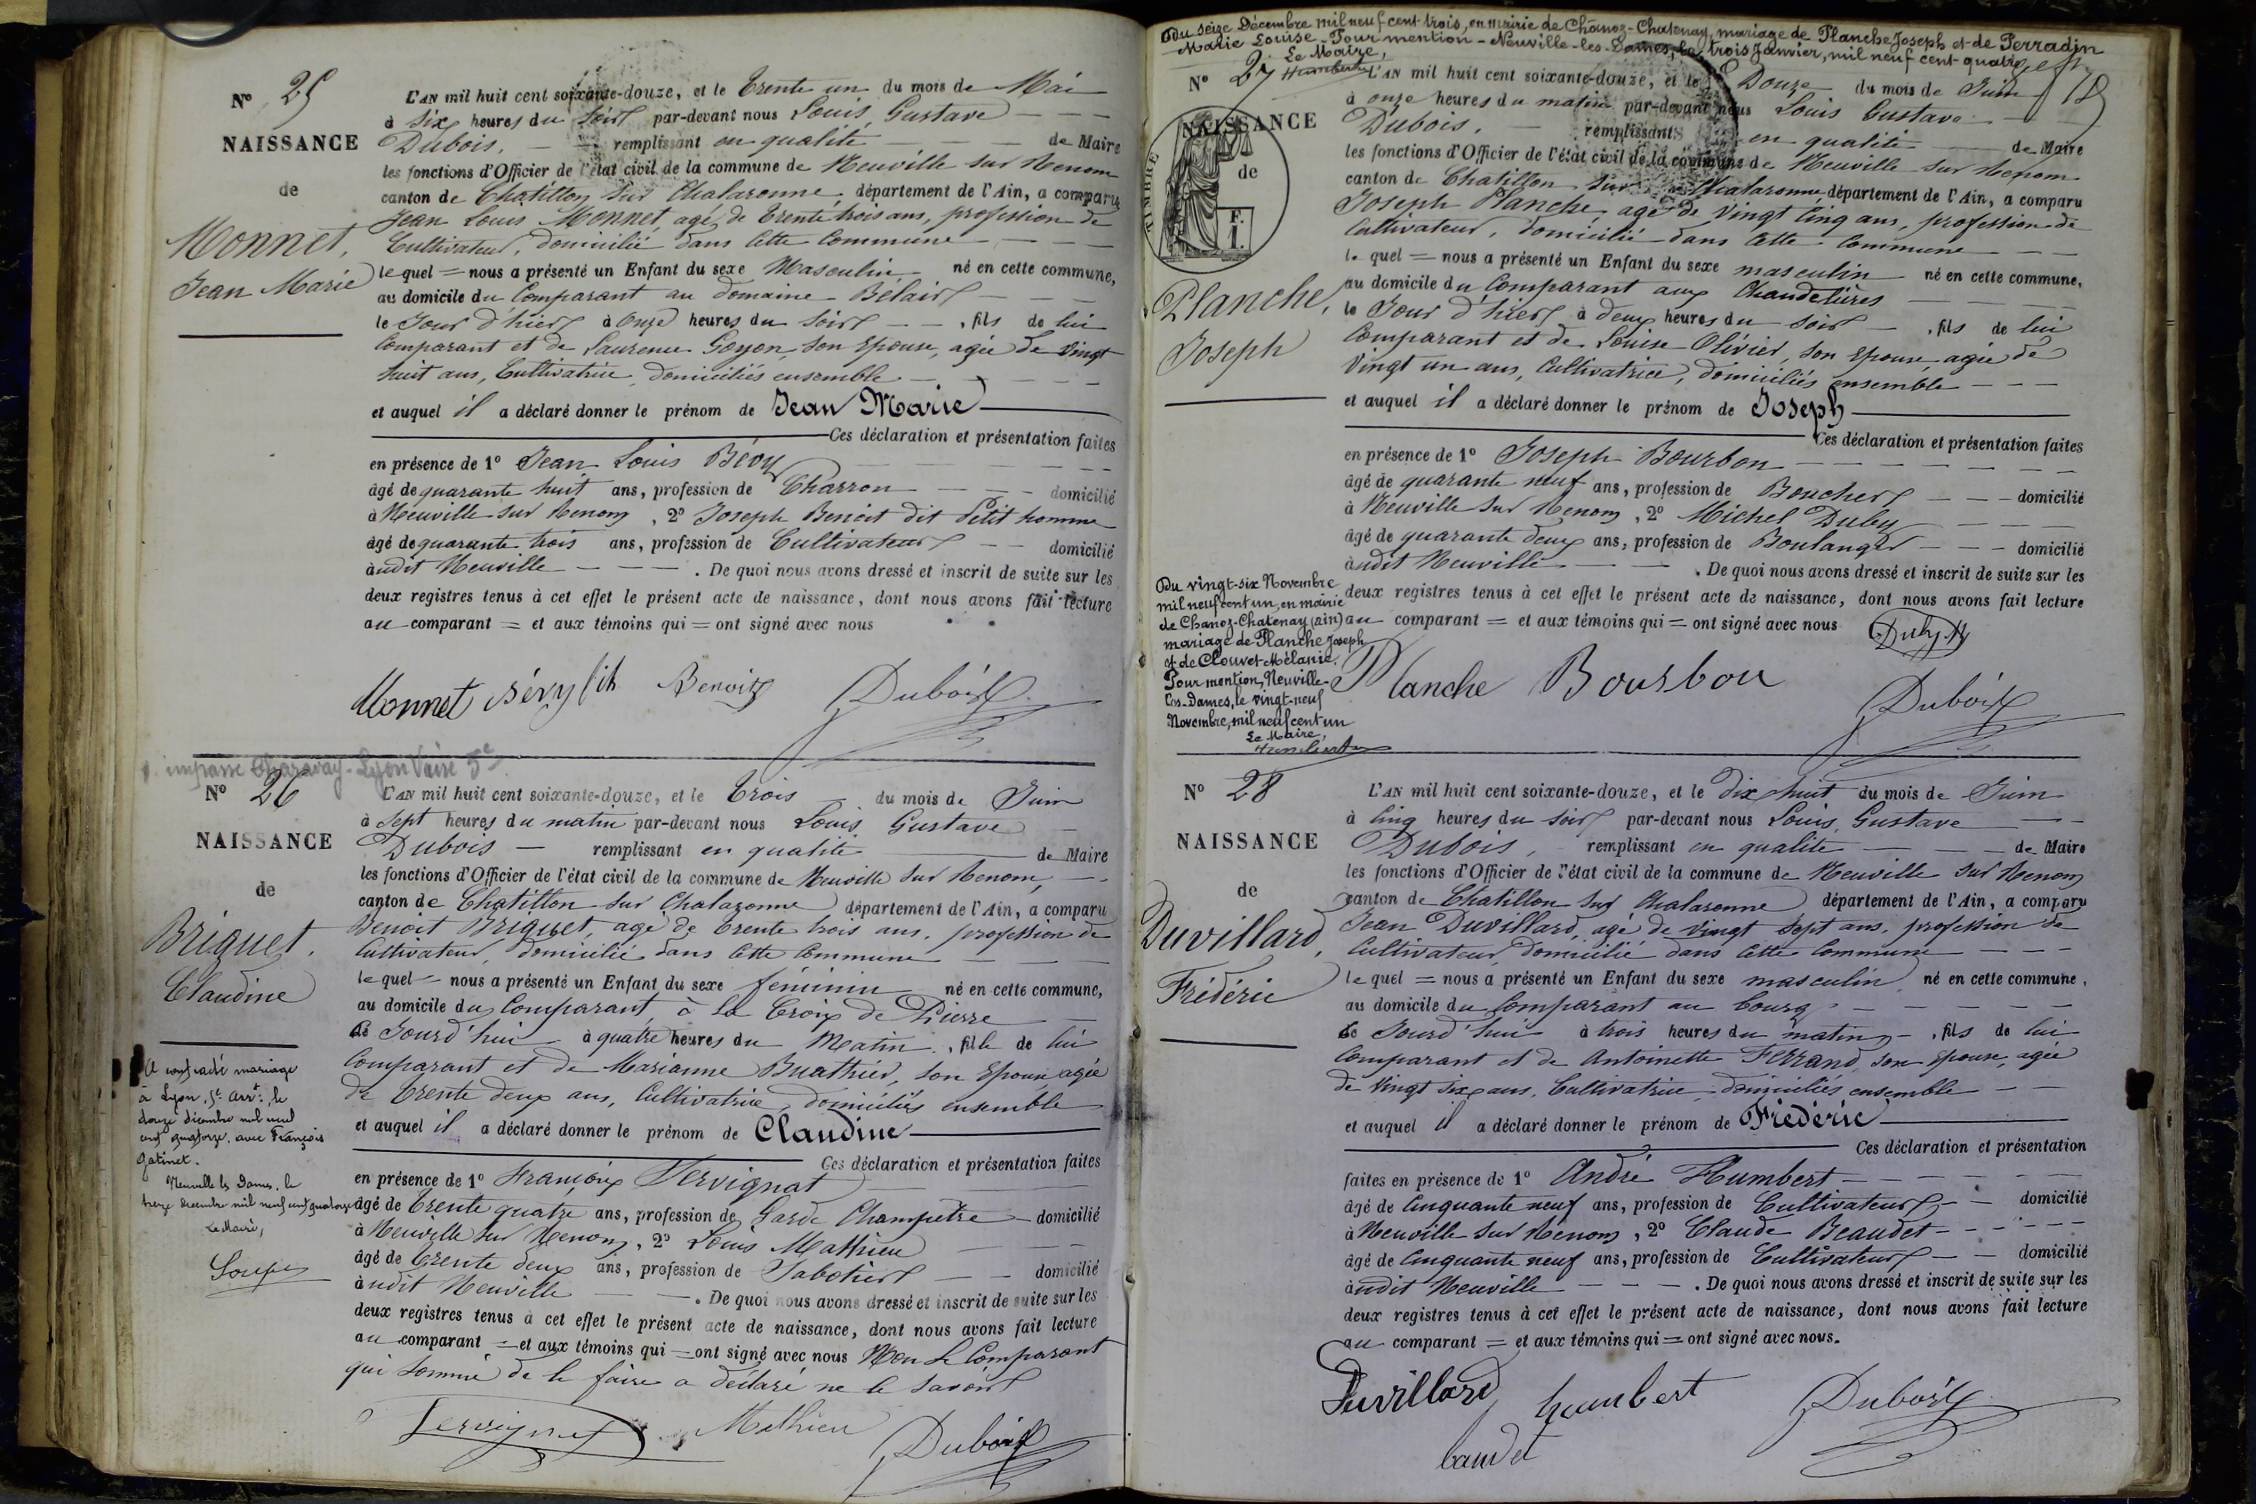 Nº 25
NAISSANCE
de
Monnet,
Jean Marie
L'AN mil huit cent soixante-douze, et le trente un du mois de Mai
à Six heures du Soir par-devant nous Louis Gustave
Dubois, remplissant en qualité de Maire
les fonctions d'Officier de l'état civil de la commune de Neuville sur Renom
canton de Chatillon sur Chalaronne, département de l'Ain, a comparu
Jean Louis Monnet, agé de trente trois ans, profession de
Cultivateur, domicilié dans cette Commune
le quel = nous a présenté un Enfant du sexe Masculin né en cette commune,
au domicile du Comparant au domaine Bélair
le Jour d'hier à Onze heures du Soir, fils de lui
Comparant et de Laurence Goyon, son Epouse, agée de vingt
huit ans, Cultivatrice, domiciliés ensemble
et auquel il a déclaré donner le prénom de Jean Marie
Ces déclaration et présentation faites
en présence de 1º Jean Louis Bévy
âgé de quarante huit ans, profession de Charron domicilié
à Neuville sur Renom, 2º Joseph Benoit dit Petit homme
âgé de quarante trois ans, profession de Cultivateur domicilié
audit Neuville. De quoi nous avons dressé et inscrit de suite sur les
deux registres tenus à cet effet le présent acte de naissance, dont nous avons fait lecture
au comparant = et aux témoins qui = ont signé avec nous
Monnet Bévy fils Benoit Dubois
impasse Charavay - Lyon Vaise 5e
Nº 26
NAISSANCE
de
Briquet.
Claudine
A contracté mariage
à Lyon, 5e arrt, le
douze décembre mil neuf
cent quatorze, avec François
Gatinet.
Neuville les Dames, le
treize décembre mil neuf cent quatorze
Le Maire,
L'AN mil huit cent soixante-douze, et le trois du mois de Juin
à Sept heures du matin par-devant nous Louis Gustave
Dubois remplissant en qualité de Maire
les fonctions d'Officier de l'état civil de la commune de Neuville sur Renom,
canton de Chatillon sur Chalaronne département de l'Ain, a comparu
Benoit Briquet, agé de trente trois ans, profession de
Cultivateur, domicilié dans cette Commune
le quel = nous a présenté un Enfant du sexe féminin né en cette commune,
au domicile du Comparant, à La Croix de Pierre
ce Jourd'hui à quatre heures du Matin, fille de lui
Comparant et de Marianne Buathier, son Epouse, agée
de trente deux ans, Cultivatrice, domiciliés ensemble
et auquel il a déclaré donner le prénom de Claudine
Ces déclaration et présentation faites
en présence de 1º François Servignat
âgé de trente quatre ans, profession de Garde Champetre domicilié
à Neuville sur Renom, 2º Louis Mathieu
âgé de trente deux ans, profession de Sabotier domicilié
audit Neuville. De quoi nous avons dressé et inscrit de suite sur les
deux registres tenus à cet effet le présent acte de naissance, dont nous avons fait lecture
au comparant = et aux témoins qui = ont signé avec nous Non le Comparant
qui sommé de le faire a déclaré ne le savoir
Servignat Mathieu Dubois
Du seize Décembre mil neuf cent trois, en mairie de Chanoz-Chatenay, mariage de Planche Joseph et de Perradin
Marie Louise - Pour mention - Neuville-les-Dames, le trois Janvier, mil neuf cent quatre
Le Maire,
Humbert
Nº 27
NAISSANCE
de
TIMBRE
F.
I.
Planche,
Joseph
L'AN mil huit cent soixante-douze, et le Douze du mois de Juin
à onze heures du matin par-devant nous Louis Gustave
Dubois, remplissant en qualité de Maire
les fonctions d'Officier de l'état civil de la commune de Neuville sur Renom
canton de Chatillon sur Chalaronne, département de l'Ain, a comparu
Joseph Planche, agé de vingt cinq ans, profession de
Cultivateur, domicilié dans cette Commune
le quel = nous a présenté un Enfant du sexe masculin né en cette commune,
au domicile du Comparant aux Chandelières
le Jour d'hier à deux heures du soir, fils de lui
Comparant et de Louise Olivier, son Epouse, agée de
vingt un ans, Cultivatrice, domiciliés ensemble
et auquel il a déclaré donner le prénom de Joseph
Ces déclaration et présentation faites
en présence de 1º Joseph Bourbon
âgé de quarante neuf ans, profession de Boucher domicilié
à Neuville sur Renom, 2º Michel Duby
âgé de quarante deux ans, profession de Boulanger domicilié
audit Neuville. De quoi nous avons dressé et inscrit de suite sur les
deux registres tenus à cet effet le présent acte de naissance, dont nous avons fait lecture
au comparant = et aux témoins qui = ont signé avec nous Duby M
Planche Bourbon Dubois
Du vingt-six Novembre
mil neuf cent un, en mairie
de Chanoz-Chatenay (Ain)
mariage de Planche Joseph
et de Clouvet Mélanie.
Pour mention, Neuville-
les-Dames, le vingt-neuf
Novembre, mil neuf cent un
Le Maire,
Humbert
Nº 28
NAISSANCE
de
Duvillard,
Frédéric
L'AN mil huit cent soixante-douze, et le Dix huit du mois de Juin
à Cinq heures du soir par-devant nous Louis Gustave
Dubois, remplissant en qualité de Maire
les fonctions d'Officier de l'état civil de la commune de Neuville sur Renom
canton de Chatillon sur Chalaronne département de l'Ain, a comparu
Jean Duvillard, agé de vingt sept ans, profession de
Cultivateur, domicilié dans cette Commune
le quel = nous a présenté un Enfant du sexe masculin né en cette commune,
au domicile du Comparant au bourg
ce Jourd'hui à trois heures du matin, fils de lui
Comparant et de Antoinette Ferrand, son Epouse, agée
de vingt six ans, Cultivatrice, domiciliés ensemble
et auquel il a déclaré donner le prénom de Frédéric
Ces déclaration et présentation
faites en présence de 1º André Humbert
âgé de Cinquante neuf ans, profession de Cultivateur domicilié
à Neuville sur Renom, 2º Claude Beaudet
âgé de Cinquante neuf ans, profession de Cultivateur domicilié
audit Neuville. De quoi nous avons dressé et inscrit de suite sur les
deux registres tenus à cet effet le présent acte de naissance, dont nous avons fait lecture
au comparant = et aux témoins qui = ont signé avec nous.
Duvillard humbert Dubois
baudet